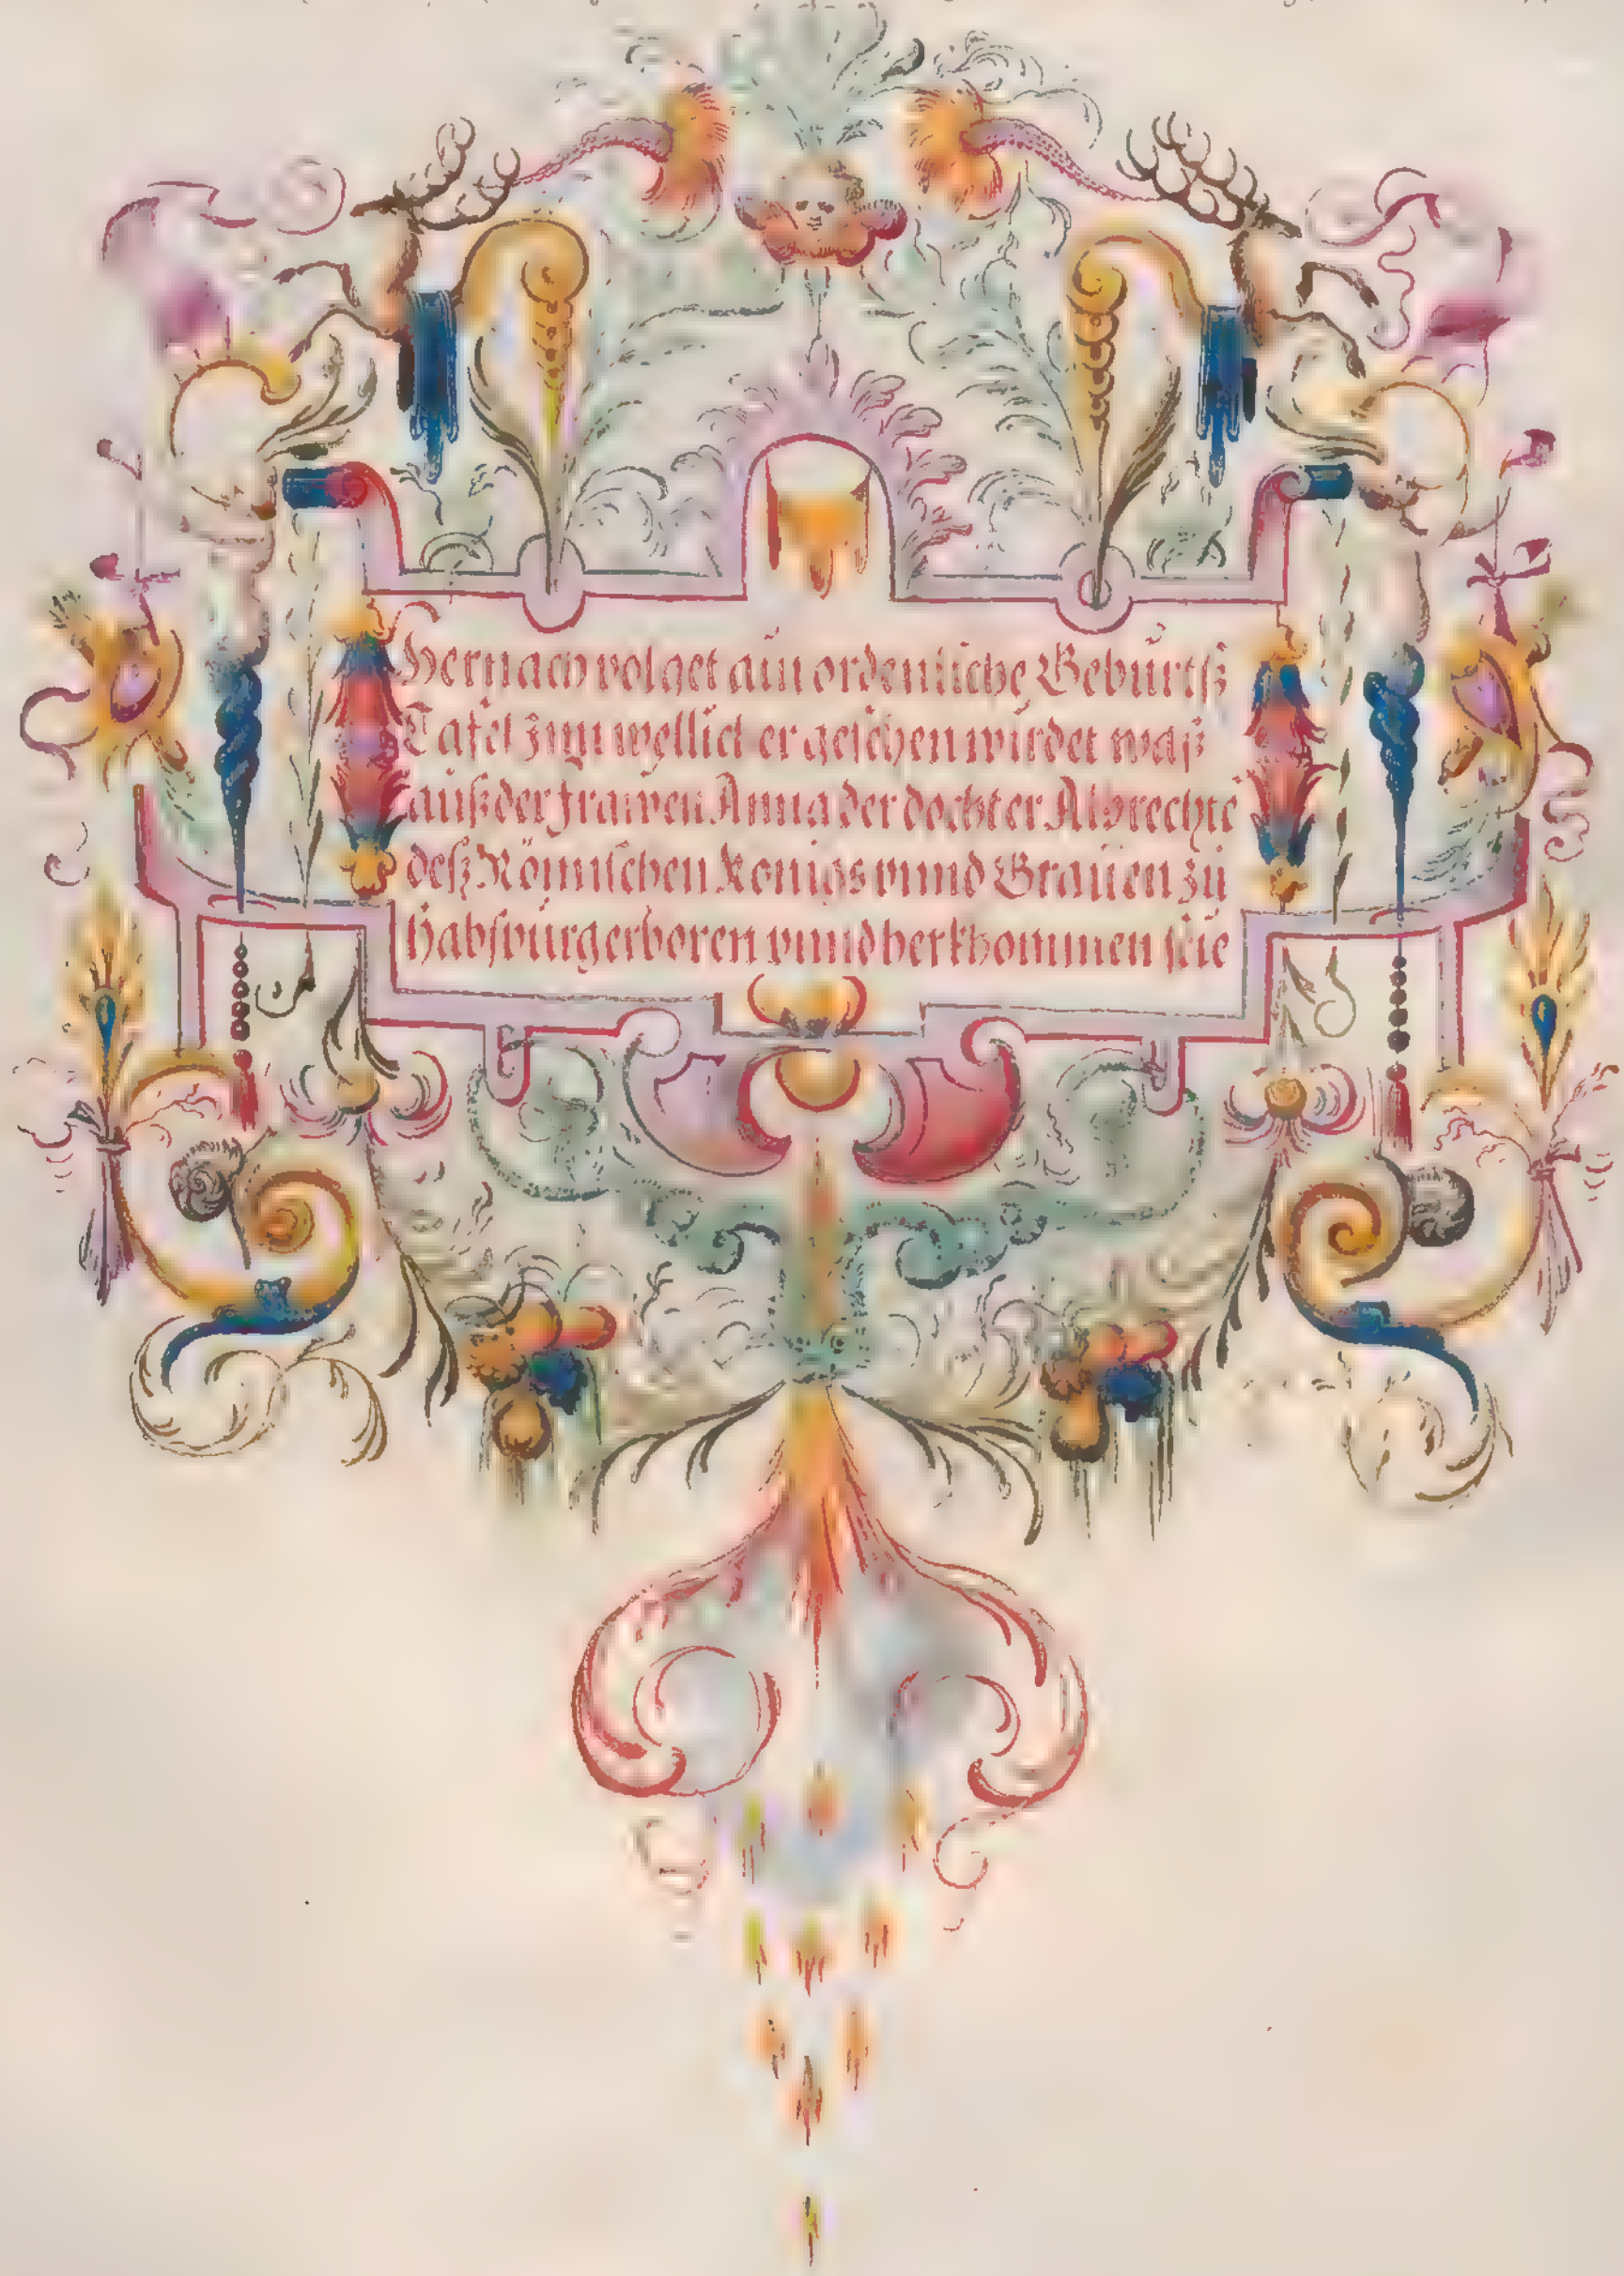 Hernach volget ain ordenliche Geburtß
Tafel zuu wellicl er gesehen wirdet waß
auß der frawen Anna der dochter Albrechts
deß Römischen Konigs vnnd Grauen zu
Habspurg erboren vnnd herkhommen seie